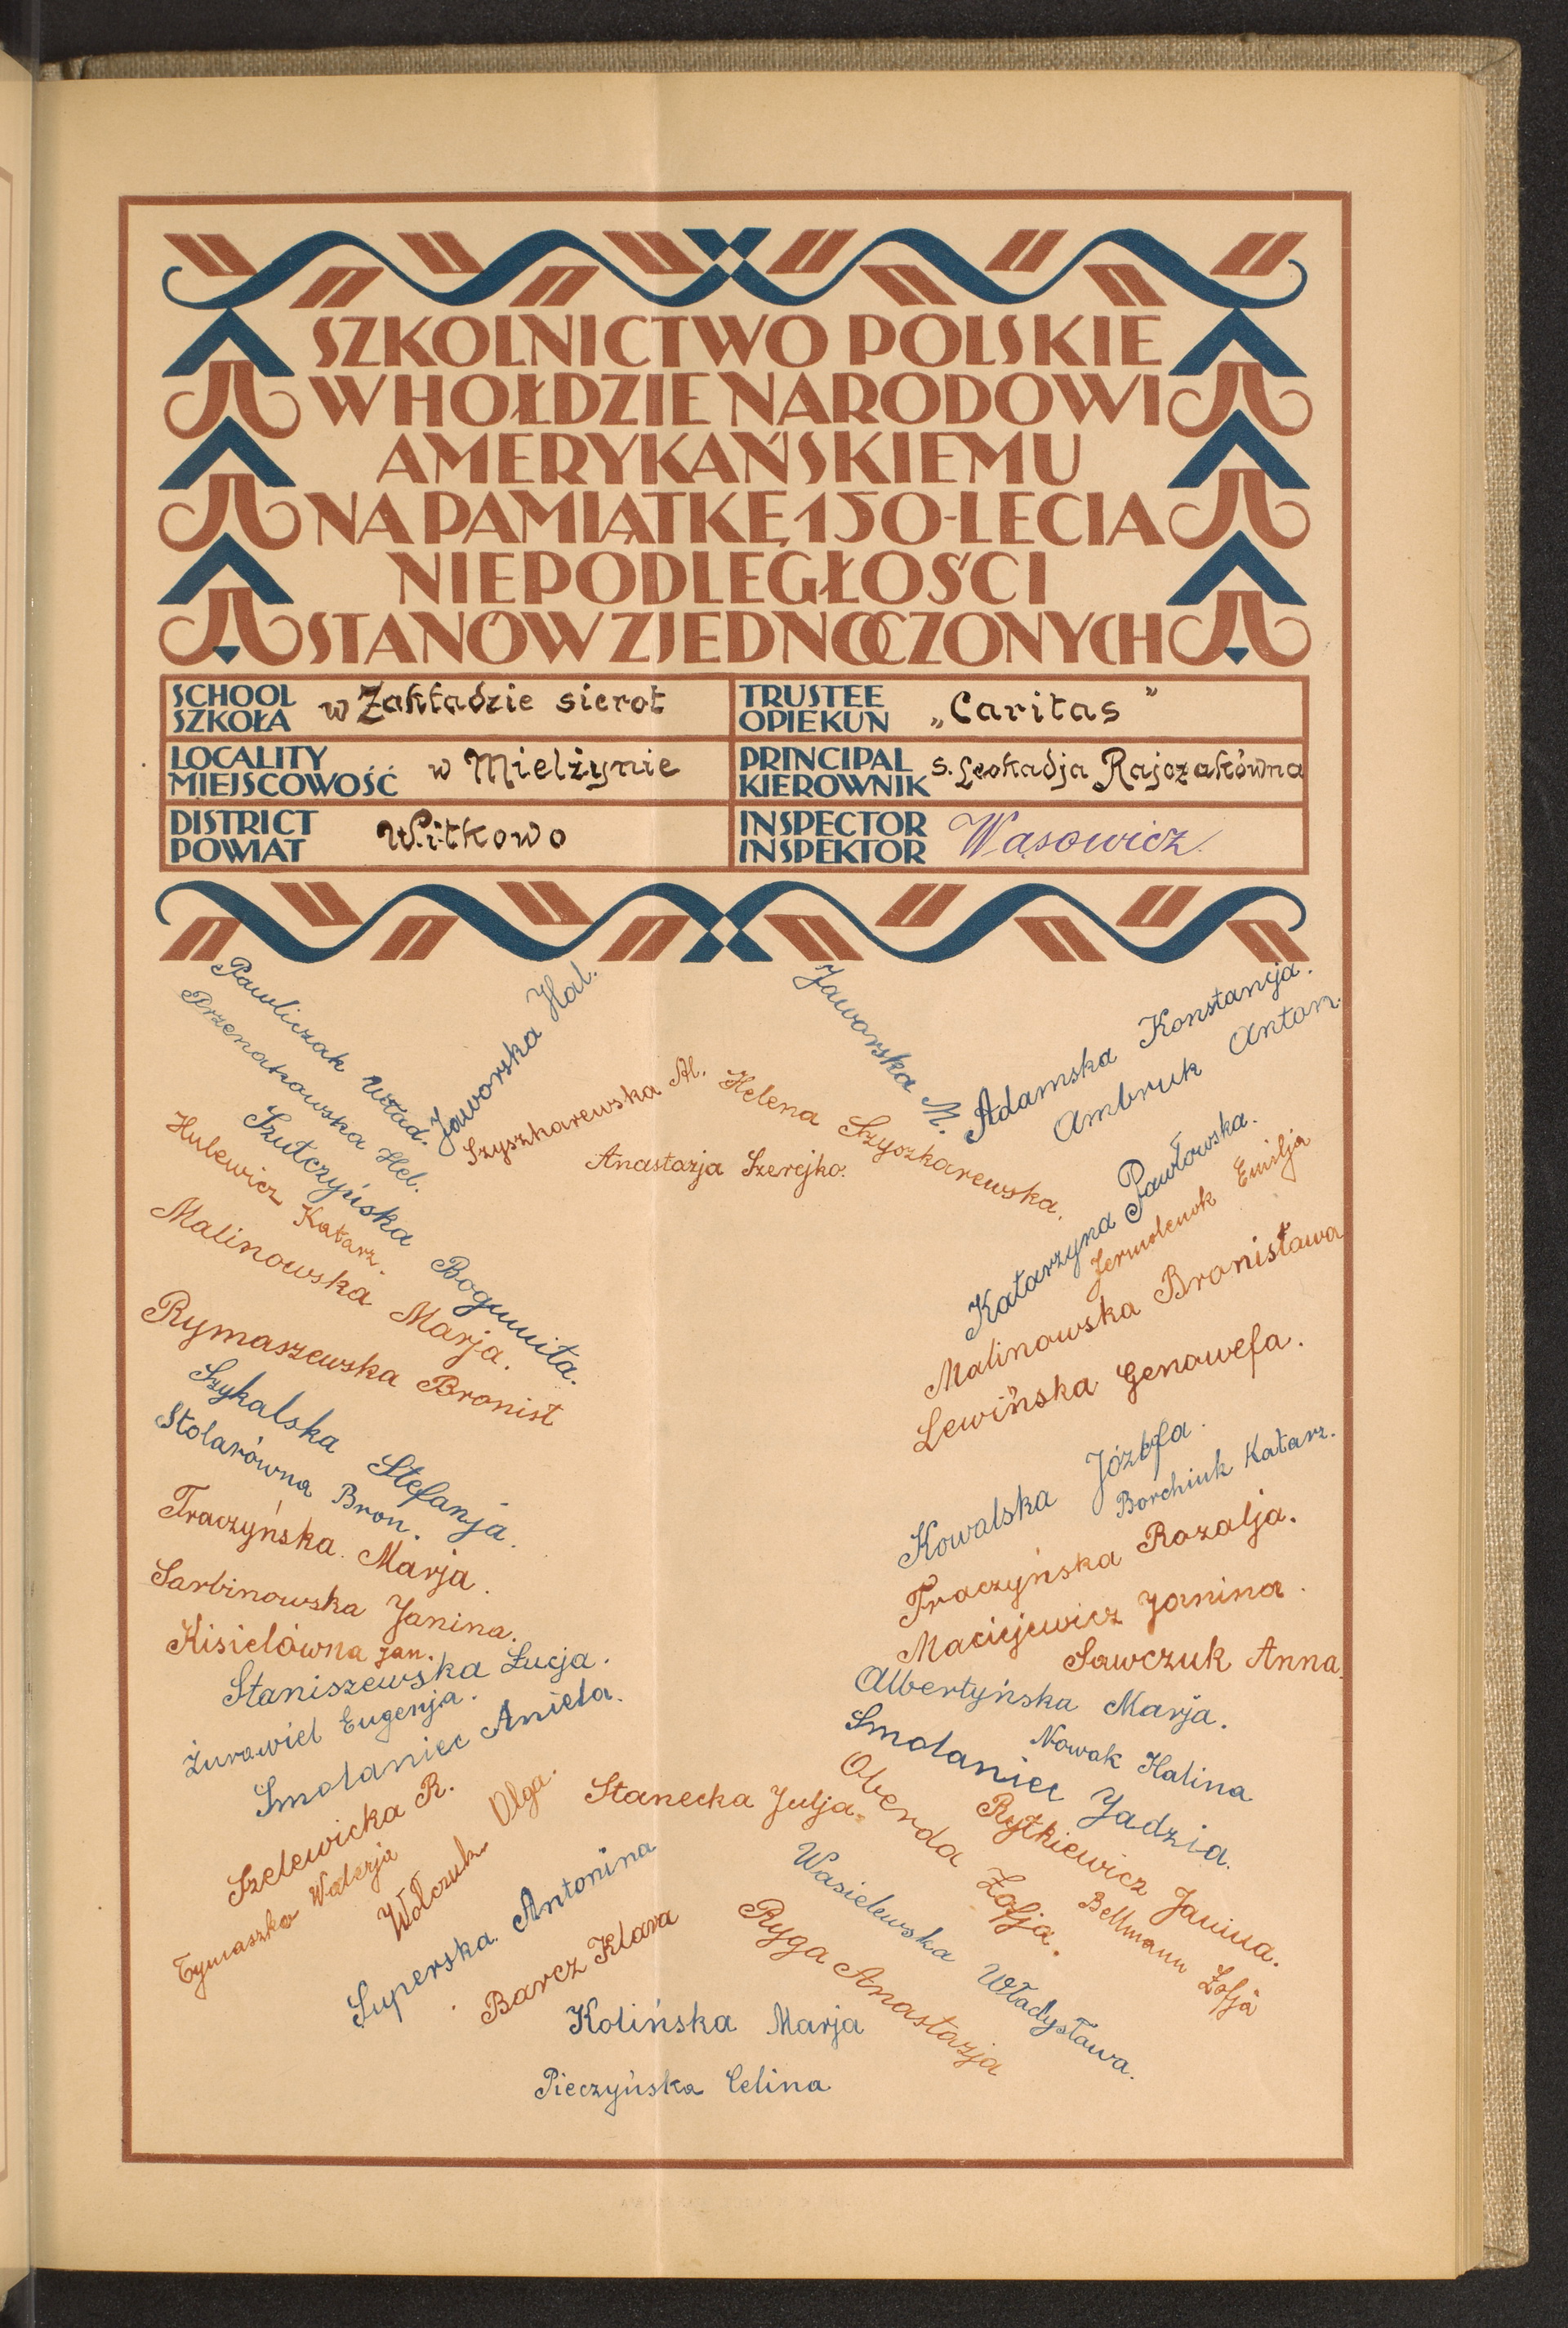 SZKOLNICTWO POLSKIE
W HOŁDZIE NARODOWI
AMERYKAŃSKIEMU
NA PAMIĄTKĘ 150-LECIA
NIEPODLEGŁOŚCI
STANÓW ZJEDNOCZONYCH
SCHOOL
SZKOŁA w Zakładzie sierot
TRUSTEE
OPIEKUN „Caritas”
LOCALITY
MIEJSCOWOŚĆ w Mielżynie
PRINCIPAL
KIEROWNIK s. Leokadja Rajczakówna
DISTRICT
POWIAT Witkowo
INSPECTOR
INSPEKTOR Wąsowicz
Pawliczak Wład.
Przenakowska Hel.
Jaworska Hal.
Szutczyńska Bogumiła.
Hulewicz Katarz.
Malinowska Marja.
Rymaszewska Bronist
Szykalska Stefanja.
Stolarówna Bron.
Traczyńska Marja.
Sarbinowska Janina.
Kisielówna Jan.
Staniszewska Łucja.
Żurawiel Eugenja.
Smolaniec Aniela.
Szelewicka R.
Tymaszko Walerja
Wołczuk Olga.
Superska Antonina
Barcz Klara
Szyszkarewska Al.
Helena Szyszkarewska.
Anastazja Szerejko.
Stanecka Julja.
Kolińska Marja
Pieczyńska Celina
Jaworska M.
Adamska Konstancja.
Ambruk Anton.
Katarzyna Pawłowska.
Jermolenok Emilja
Malinowska Bronisława
Lewińska Genowefa.
Kowalska Józefa.
Borchiuk Katarz.
Traczyńska Rozalja.
Maciejewicz Janina.
Sawczuk Anna.
Albertyńska Marja.
Nowak Halina
Smolaniec Jadzia.
Rytkiewicz Janina.
Oberda Zofja.
Bellmann Zofja
Wasielewska Władysława.
Ryga Anastazja